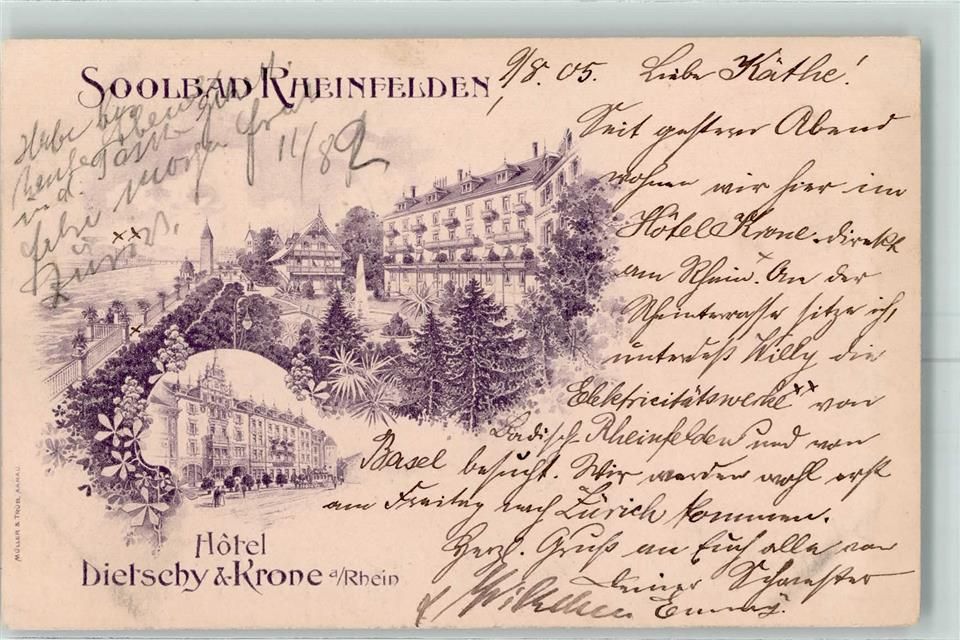 SOOLBAD RHEINFELDEN
9/8.05. Liebe Käthe!
Seit gestern Abend
wohnen wir hier im
Hôtel Krone direkt
am Rhein. An der
Rheinterrasse sitze ich,
unterdeß Willy die
Elektricitätswerke xx von
Badisch-Rheinfelden und von
Basel besucht. Wir werden wohl erst
am Freitag nach Zürich kommen.
Herzl. Gruß an Euch alle von
Deiner Schwester
Emmy.
Habe
u. d.
morgen früh
Zürich.
11/8
xx
x
Hôtel
Dietschy & Krone a/Rhein
MÜLLER & TRÜB, AARAU.